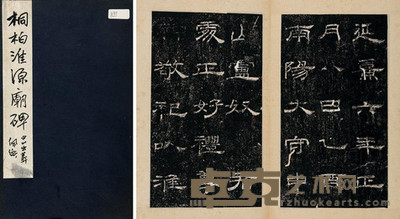 桐柏淮源廟碑
延熹六年正
月八日乙酉
南陽太守
山盧奴
處正好禮
敬祀以淮